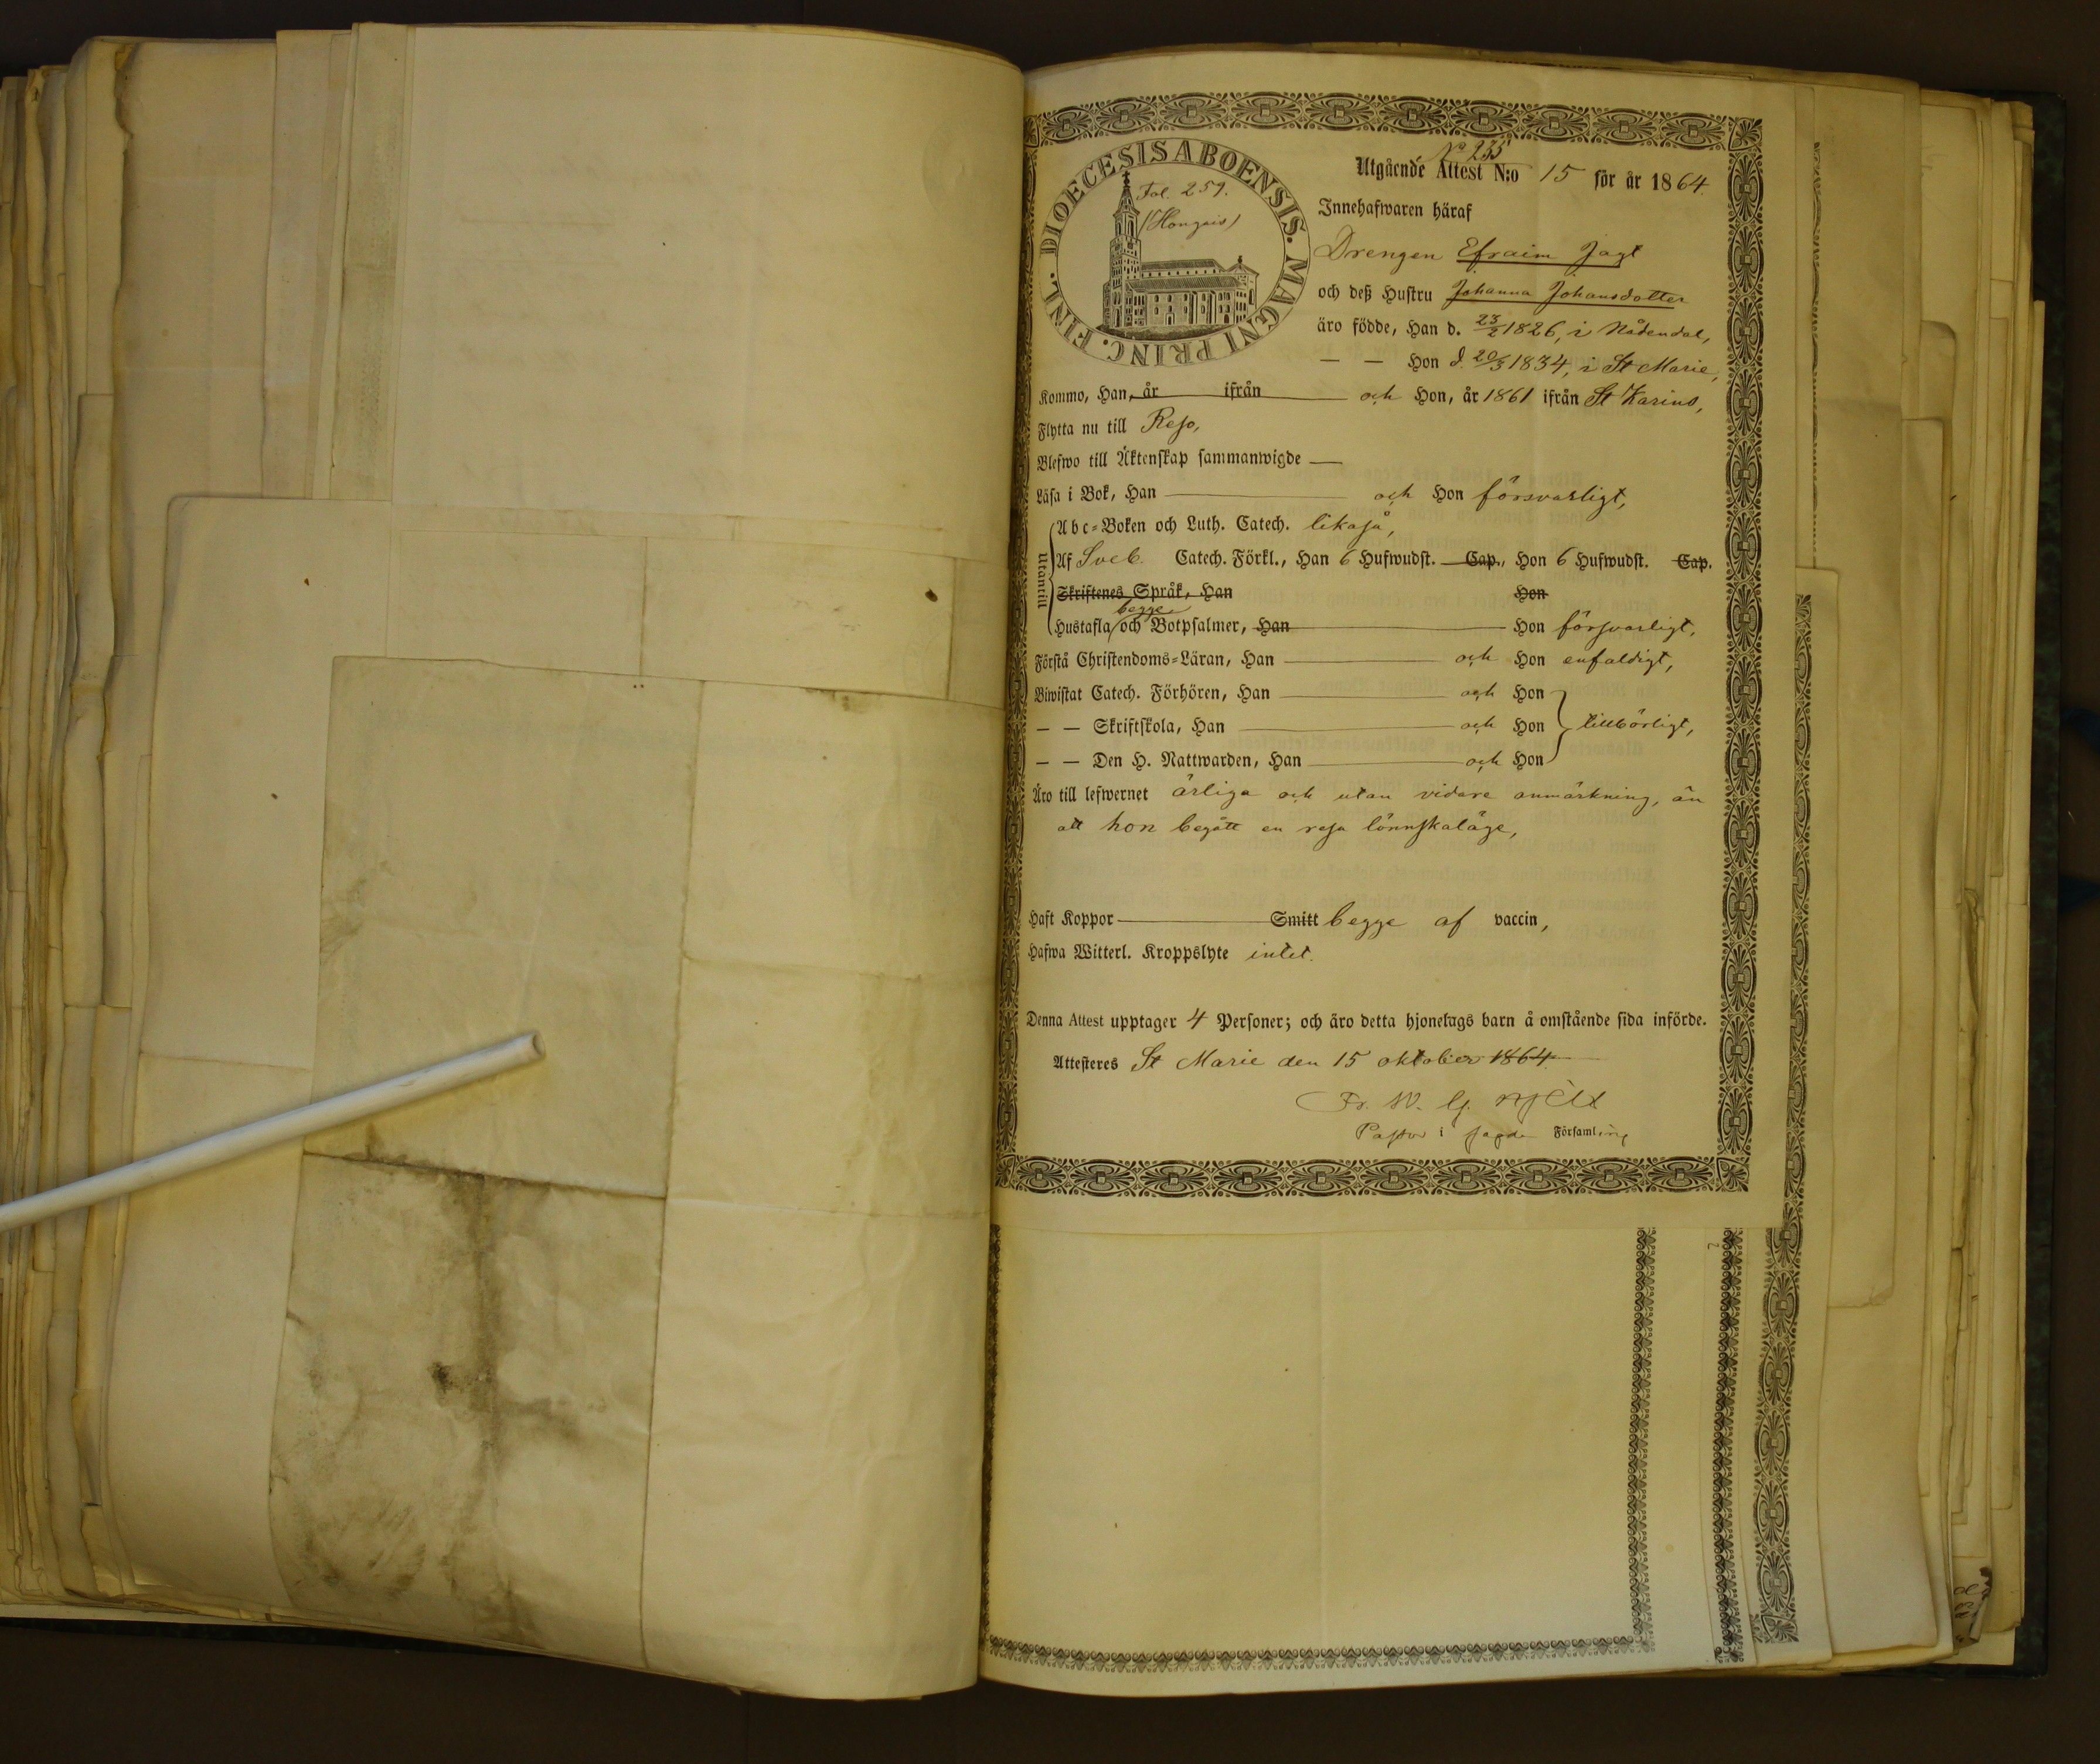 DIOECESIS ABOENSIS. MAGNI PRINC. FINL.
Fol. 259.
No 235
Utgående Attest N:o 15 för år 1864.
Innehafwaren häraf
Drengen Efraim Jagt
och deß Hustru Johanna Johansdotter
äro födde, Han d. 23/2 1826, i Nådendal,
— — Hon d. 20/3 1834, i St Marie,
Kommo, Han, år ifrån och Hon, år 1861 ifrån St Karins,
Flytta nu till Reso,
Blefwo till Äktenskap sammanwigde —
Läsa i Bok, Han — och Hon försvarligt,
Utantill
Abc-Boken och Luth. Catech. likaså,
Af Sveb. Catech. Förkl., Han 6 Hufwudst. Cap., Hon 6 Hufwudst. Cap.
Skriftenes Språk, Han Hon
begge
Hustafla och Botpsalmer, Han — Hon försvarligt,
Förstå Christendoms-Läran, Han — och Hon enfaldigt,
Biwistat Catech. Förhören, Han — och Hon
— — Skriftskola, Han — och Hon tillbörligt,
— — Den H. Nattwarden, Han — och Hon
Äro till lefwernet ärliga och utan vidare anmärkning, än
att hon begått en resa lönnskaläge,
Haft Koppor — Smitt begge af vaccin,
Hafwa Witterl. Kroppslyte intet.
Denna Attest upptager 4 Personer; och äro detta hjonelags barn å omstående sida införde.
Attesteres St Marie den 15 oktober 1864
Fr. W. G. Hjelt
Pastor i sagde Församling